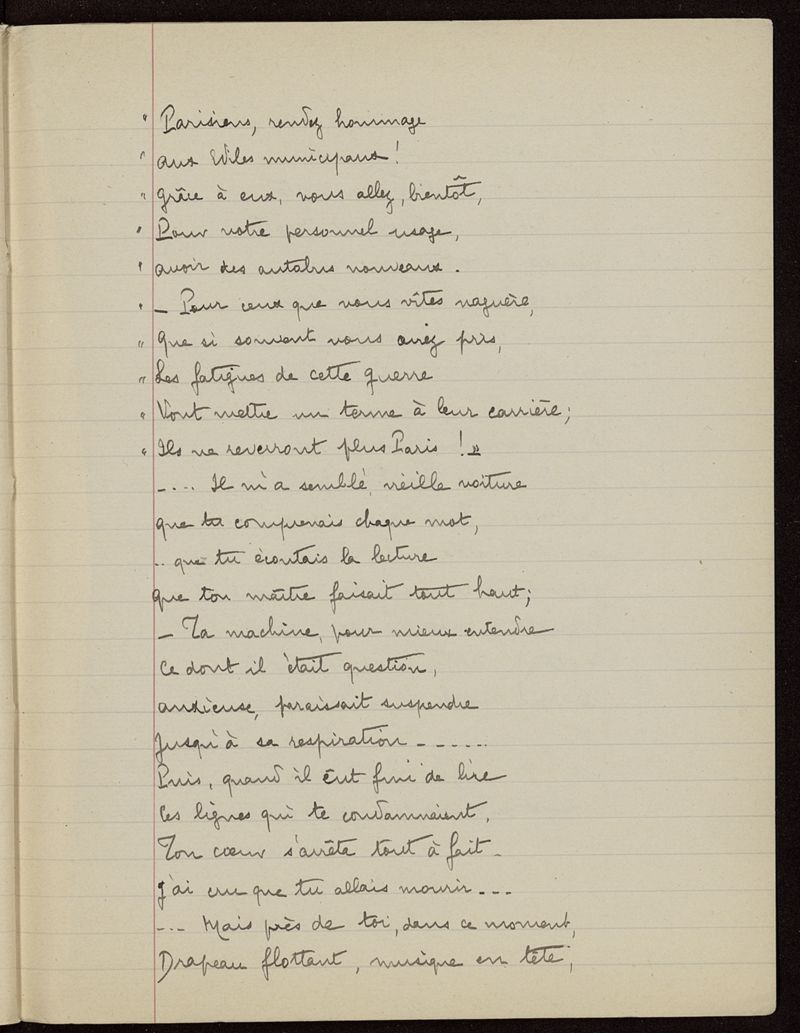 " Parisiens, rendez hommage
" aux Ediles municipaux !
" grâce à eux, vous allez, bientôt,
" Pour votre personnel usage,
" avoir des autobus nouveaux.
" – Pour ceux que vous vîtes naguère,
" Que si souvent vous avez pris,
" Les fatigues de cette guerre
" Vont mettre un terme à leur carrière ;
" Ils ne reverront plus Paris ! »
–... Il m'a semblé, vieille voiture
que tu comprenais chaque mot,
.. que tu écoutais la lecture
que ton maître faisait tout haut ;
– Ta machine, pour mieux entendre
Ce dont il était question,
anxieuse, paraissait suspendre
Jusqu'à sa respiration – – – ...
Puis, quand il eût fini de lire
Ces lignes qui te condamnaient,
Ton cœur s'arrêta tout à fait –
J'ai cru que tu allais mourir – – –
– .. Mais près de toi, dans ce moment,
Drapeau flottant, musique en tête,